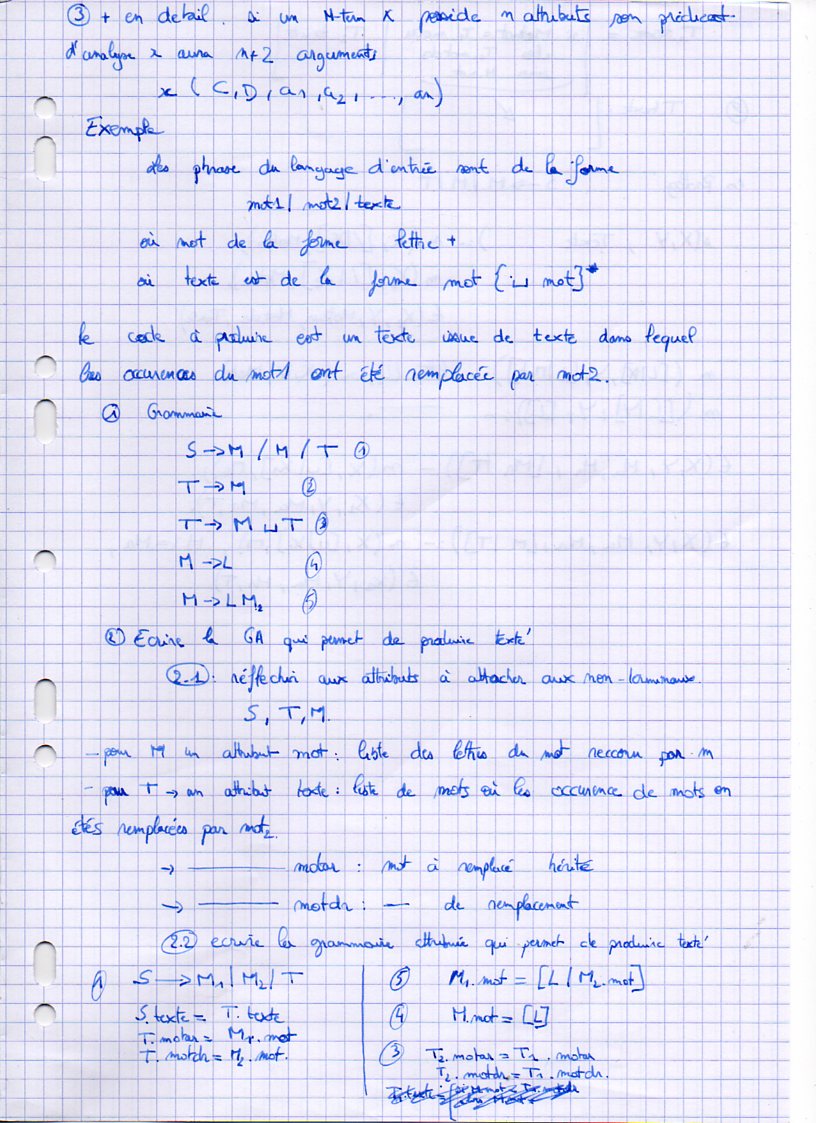 ③ + en detail . si un N-term X posside n attributs son prédicat
d'analyse x aura n+2 arguments
x ( C, D, a1, a2, ..., an)
Exemple
des phrase du langage d'entrée sont de la forme
mot1/ mot2/ texte
où mot de la forme lettre +
où texte est de la forme mot {⊔ mot}*
le code à produire est un texte issue de texte dans lequel
les occurences du mot1 ont été remplacée par mot2.
① Grammaire
S → M / M / T ①
T → M ②
T → M ⊔ T ③
M → L ④
M → L M2 ⑤
② Ecrire la GA qui permet de produire texte'
2.1 : réfflechir aux attributs à attacher aux non-terminaux.
S, T, M.
- pour M un attribut mot : liste des lettres du mot reccoru par m
- pour T → un attribut texte : liste de mots où les occurence de mots on
étés remplacées par mot2.
→ ——— motar : mot à remplacé hérité
→ ——— motdr : — de remplacement
2.2 ecrire la grammaire attribuée qui permet de produire texte'
① S → M1 / M2 / T
S.texte = T.texte
T.motar = M1.mot
T.motdr = M2.mot.
⑤ M1.mot = [L / M2.mot]
④ M.mot = [L]
③ T2.motar = T1.motar
T2.motdr = T1.motdr.